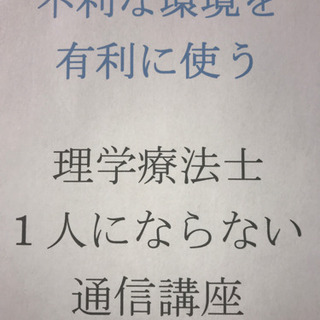 不利な環境を
有利に使う
理学療法士
１人にならない
通信講座